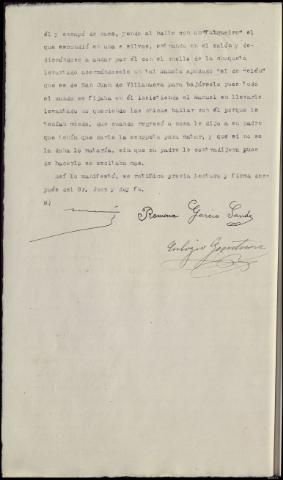 él y escapó de casa, yendo al baile con un "Tabureiro" el
que escondió en una s silvas, entrando en el salón y de-
dicándose a andar por él con el cuello de la chaqueta
levantado acercándosele un tal Manolo apodado "el de
que es de San Juan de Villanueva para bajárselo pues todo
el mundo se fijaba en él insistiendo el Manuel en llevarlo
levantado no queriendo las chicas bailar con él porque le
tenían miedo, que cuando regresó a casa le dijo a su padre
que tenía que darle la escopeta para matar, y que si no se
la daba lo mataría, sin que su padre le contradijera pues
de hacerlo se excitaba mas.
Así lo manifestó, se ratifica previa lectura y firma des-
pués del Sr. Juez y doy fe.
Ramona García Sande
Eulogio